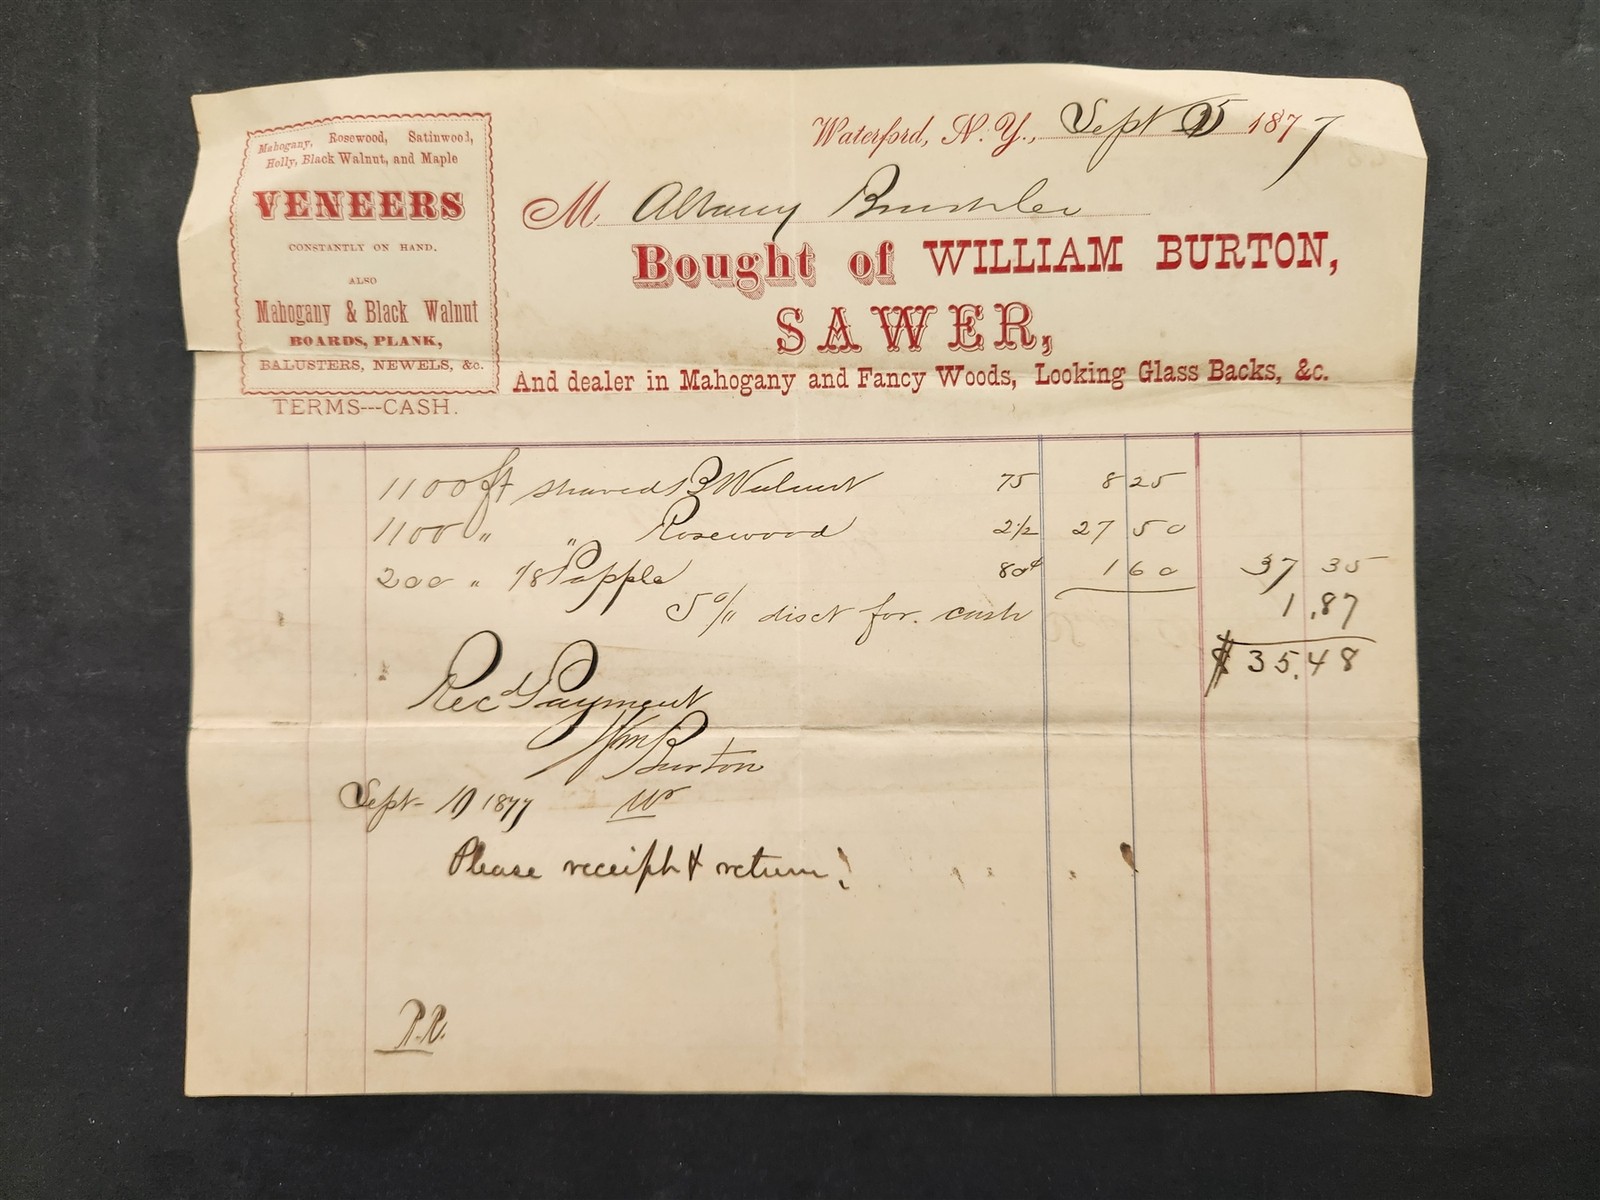 Mahogany, Rosewood, Satinwood,
Holly, Black Walnut, and Maple
VENEERS
CONSTANTLY ON HAND.
ALSO
Mahogany & Black Walnut
BOARDS, PLANK,
BALUSTERS, NEWELS, &c.
TERMS---CASH.
Waterford, N. Y., Sept 1877
M Albany
Bought of WILLIAM BURTON,
SAWER,
And dealer in Mahogany and Fancy Woods, Looking Glass Backs, &c.
1100 ft shaved B Walnut 75 8 25
1100 " " Rosewood 2 1/2 27 50
200 " 1/8 Popple 80¢ 1 60 37 35
5 % disct for. cash 1.87
$35.48
Recd Payment
Wm Burton
Sept 1877
Please receipt & return!